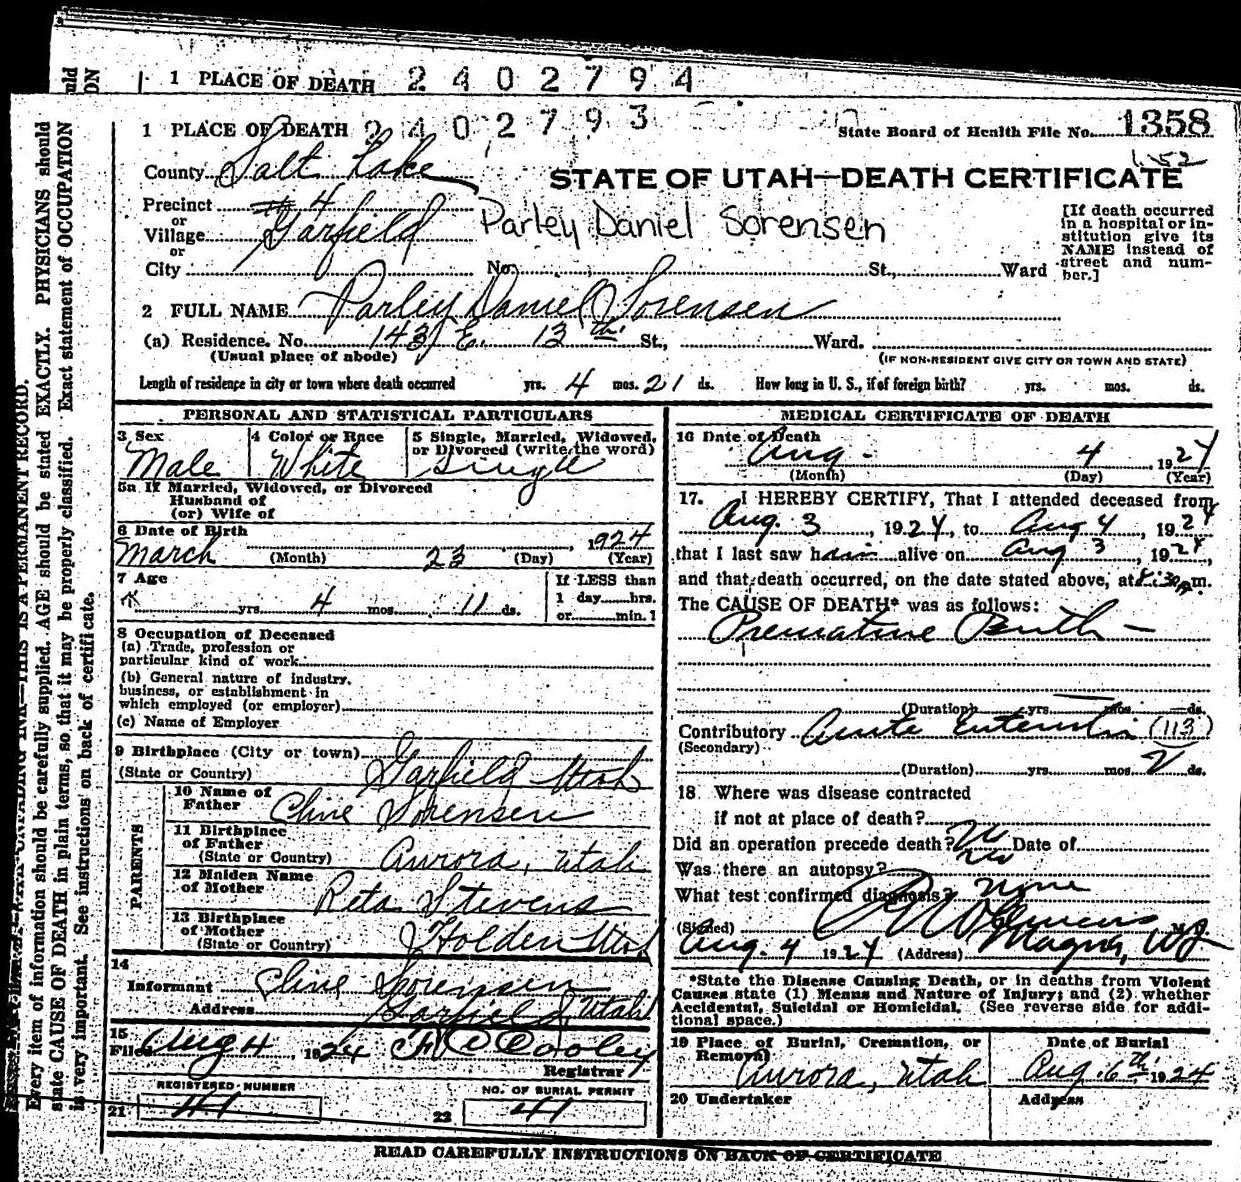 1 PLACE OF DEATH 2402794
1 PLACE OF DEATH 2402793
State Board of Health File No. 1358
152
County Salt Lake
STATE OF UTAH—DEATH CERTIFICATE
Precinct 4
or
Village Garfield
Parley Daniel Sorensen
or
City No. St., Ward
[If death occurred
in a hospital or in-
stitution give its
NAME instead of
street and num-
ber.]
2 FULL NAME Parley Daniel Sorensen
(a) Residence. No. 143 E. 13th St., Ward.
(Usual place of abode) (IF NON-RESIDENT GIVE CITY OR TOWN AND STATE)
Length of residence in city or town where death occurred yrs. 4 mos. 21 ds. How long in U. S., if of foreign birth? yrs. mos. ds.
PERSONAL AND STATISTICAL PARTICULARS
3 Sex
Male
4 Color or Race
White
5 Single, Married, Widowed,
or Divorced (write the word)
Single
5a If Married, Widowed, or Divorced
Husband of
(or) Wife of
6 Date of Birth
March 23 1924
(Month) (Day) (Year)
7 Age
yrs. 4 mos. 11 ds.
If LESS than
1 day hrs.
or min.?
8 Occupation of Deceased
(a) Trade, profession or
particular kind of work
(b) General nature of industry,
business, or establishment in
which employed (or employer)
(c) Name of Employer
9 Birthplace (City or town)
(State or Country) Garfield Utah
PARENTS
10 Name of
Father Cline Sorensen
11 Birthplace
of Father
(State or Country) Aurora, Utah
12 Maiden Name
of Mother Reta Stevens
13 Birthplace
of Mother
(State or Country) Holden Utah
14
Informant Cline Sorensen
Address Garfield, Utah
15
Filed Aug 4, 1924 F C Cooley
Registrar
REGISTERED NUMBER
21 41
NO. OF BURIAL PERMIT
22 41
MEDICAL CERTIFICATE OF DEATH
16 Date of Death
Aug. 4, 1924
(Month) (Day) (Year)
17. I HEREBY CERTIFY, That I attended deceased from
Aug. 3, 1924, to Aug 4, 1924
that I last saw him alive on Aug 3, 1924,
and that death occurred, on the date stated above, at 8:30 A m.
The CAUSE OF DEATH* was as follows:
Premature Birth —
(Duration) yrs. mos. ds.
Contributory Acute Enteritis (113)
(Secondary)
(Duration) yrs. mos. 2 ds.
18 Where was disease contracted
if not at place of death?
Did an operation precede death? No Date of
Was there an autopsy? No
What test confirmed diagnosis? None
(Signed)
Aug. 4 1924 (Address) Magna,
*State the Disease Causing Death, or in deaths from Violent
Causes state (1) Means and Nature of Injury; and (2) whether
Accidental, Suicidal or Homicidal. (See reverse side for addi-
tional space.)
19 Place of Burial, Cremation, or
Removal
Aurora, Utah
Date of Burial
Aug. 6th 1924
20 Undertaker
Address
READ CAREFULLY INSTRUCTIONS ON BACK OF CERTIFICATE
THIS IS A PERMANENT RECORD.
Every item of information should be carefully supplied. AGE should be stated EXACTLY. PHYSICIANS should
state CAUSE OF DEATH in plain terms, so that it may be properly classified. Exact statement of OCCUPATION
is very important. See instructions on back of certificate.